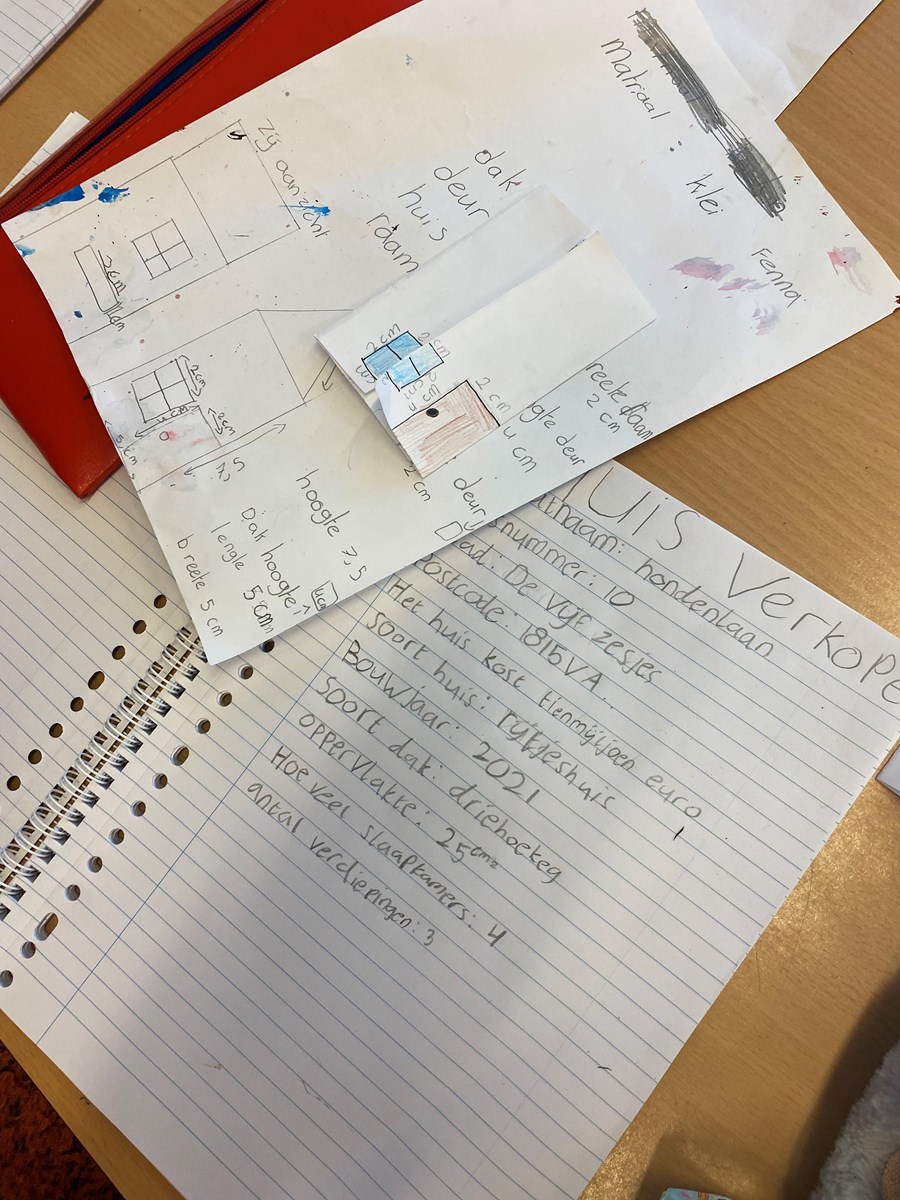 Matriaal : klei
Fenna
dak
deur
huis
raam
Zij aanzicht
2cm
2cm
2cm
2cm
2 cm
2 cm
2 cm
4 cm
2 cm
deur
hoogte 7,5
Dak hoogte: 4cm
lengte 5 cm
breete 5 cm
7,5
HUIS Verkope
hondenlaan
nummer: 10
De vijf zesjes
Postcode: 1815VA
Het huis kost tienmijoen euro
soort huis: rijtjeshuis
Bouwjaar: 2021
soort dak: driehoekeg
oppervlakte: 25 cm2
Hoe veel slaapkamers: 4
antal verdiepingen: 3